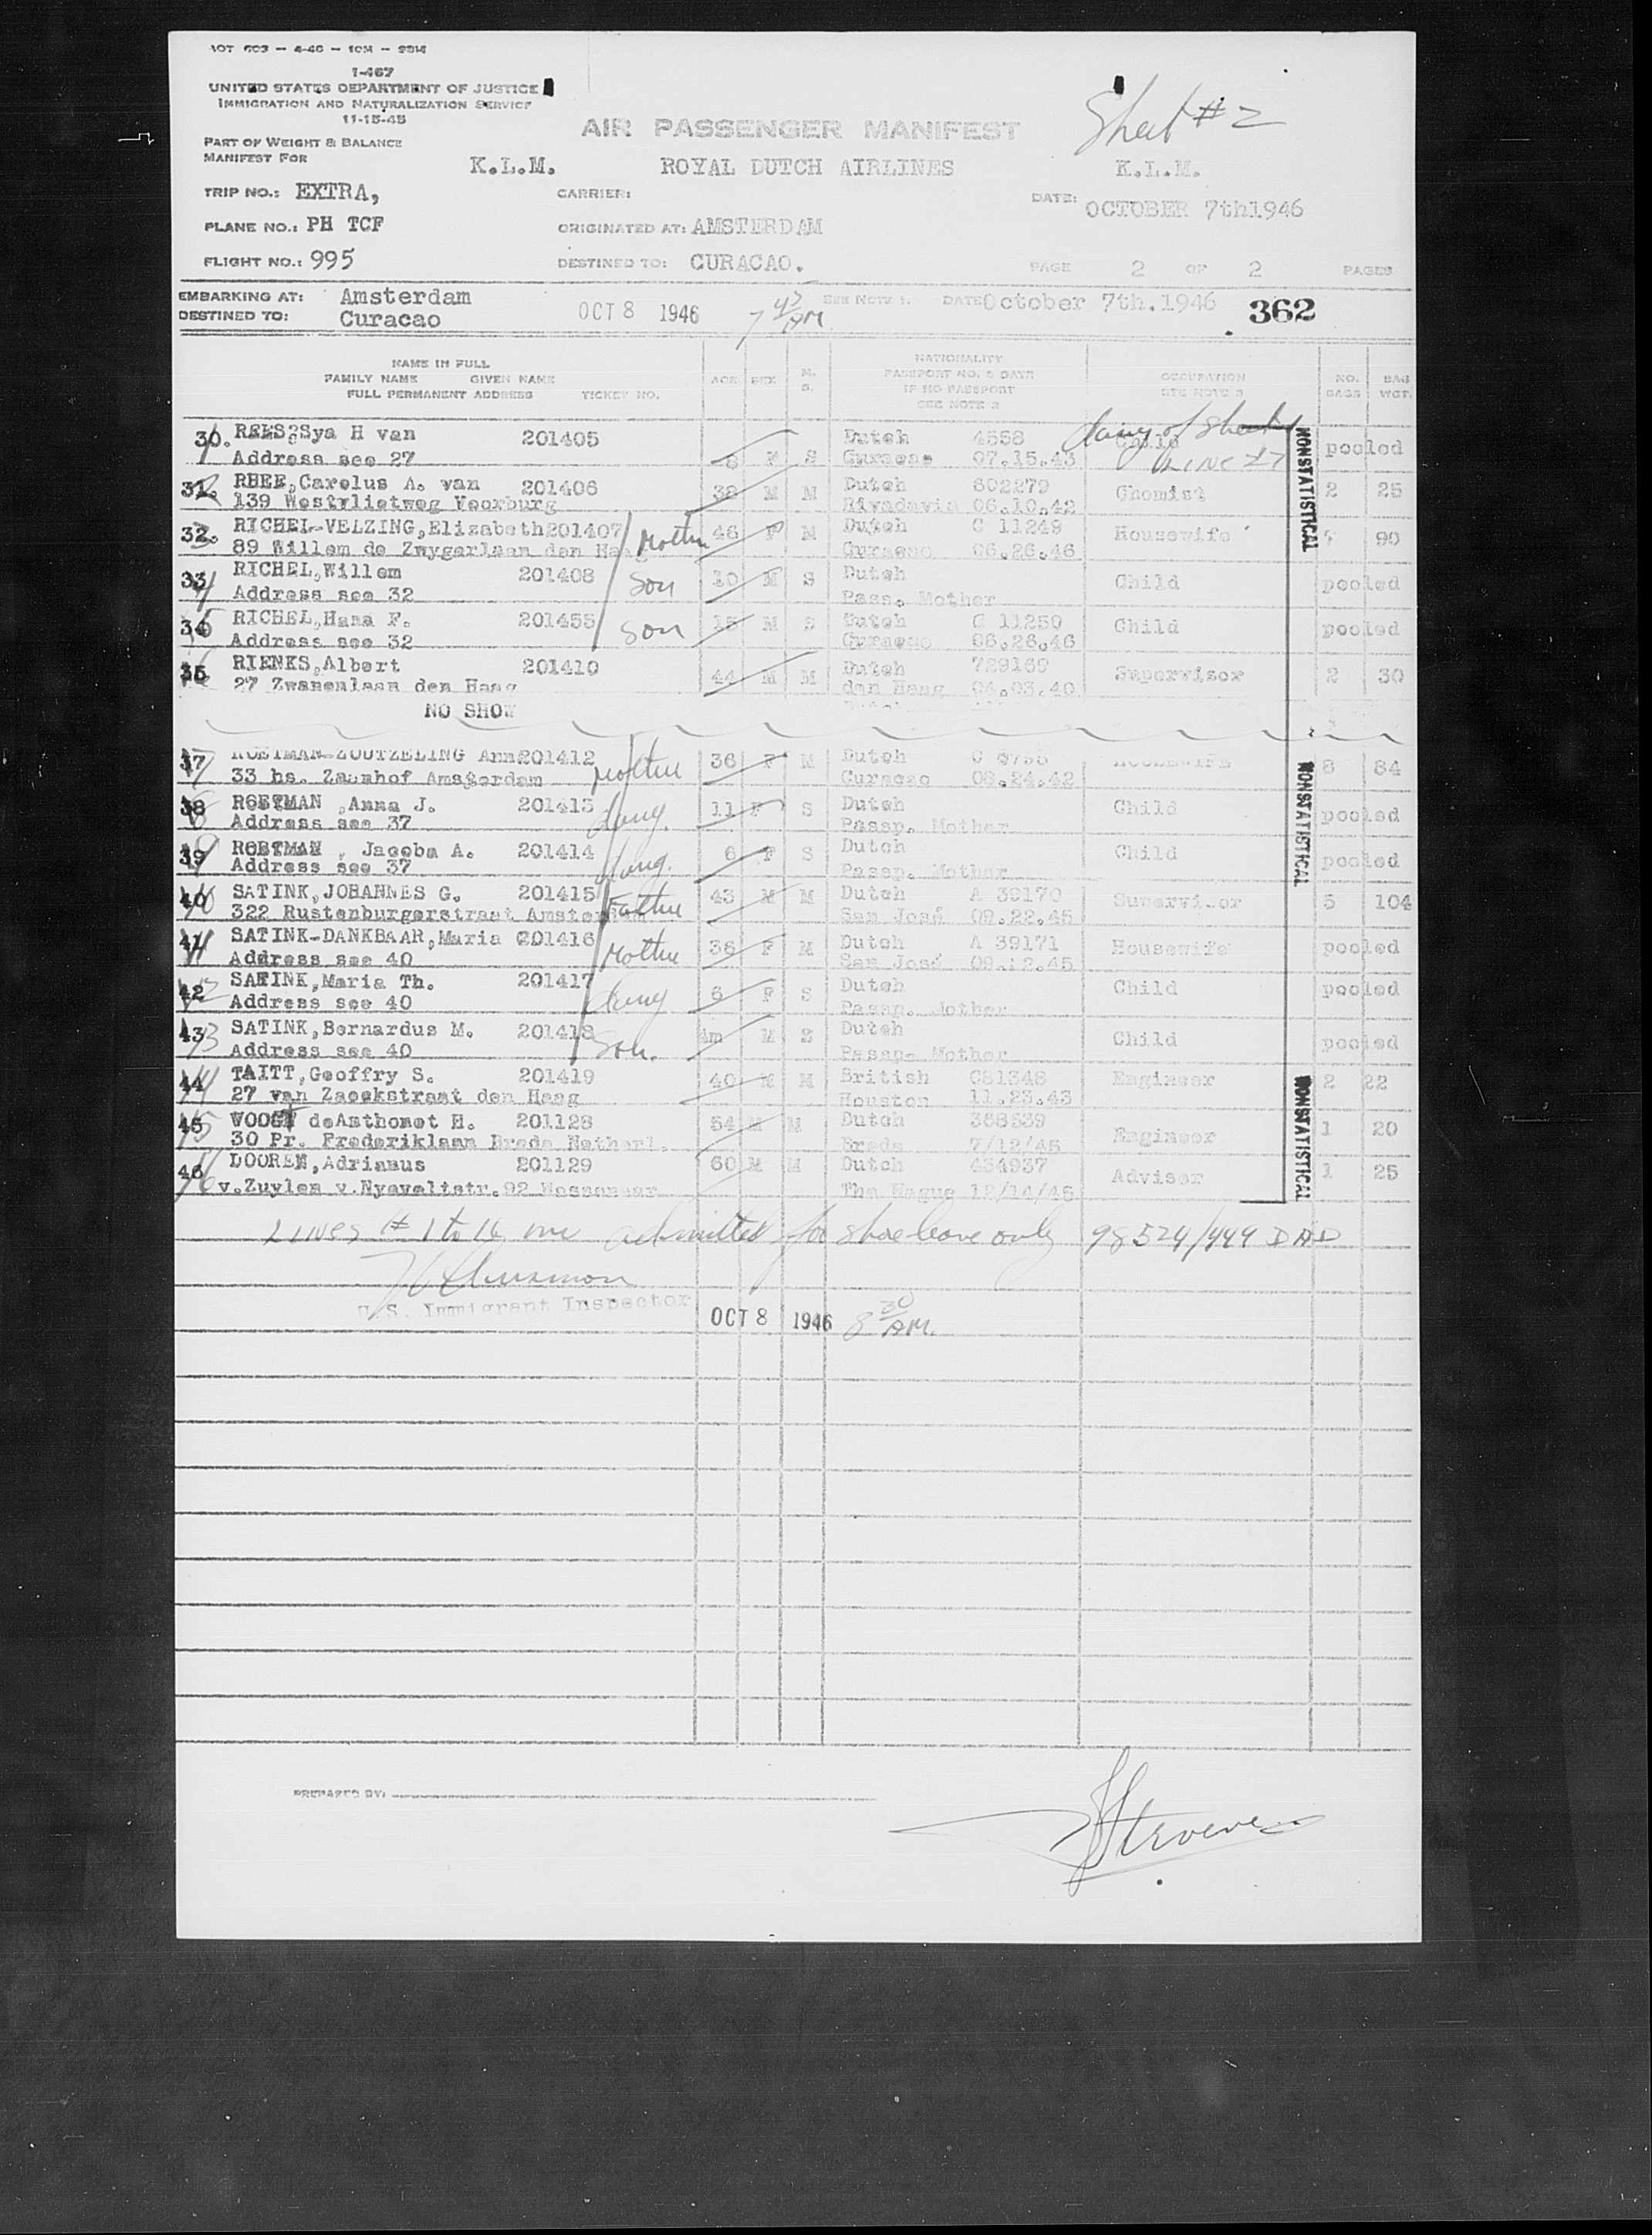 I-467
UNITED STATES DEPARTMENT OF JUSTICE
IMMIGRATION AND NATURALIZATION SERVICE
11-15-45
AIR PASSENGER MANIFEST
Sheet #2
PART OF WEIGHT & BALANCE
MANIFEST FOR
K.L.M. ROYAL DUTCH AIRLINES K.L.M.
TRIP NO.: EXTRA, CARRIER: DATE: OCTOBER 7th1946
PLANE NO.: PH TCF ORIGINATED AT: AMSTERDAM
FLIGHT NO.: 995 DESTINED TO: CURACAO. PAGE 2 OF 2 PAGES
EMBARKING AT: Amsterdam OCT 8 1946 7 45 AM SEE NOTE 1. DATE October 7th.1946 362
DESTINED TO: Curacao
NAME IN FULL
FAMILY NAME GIVEN NAME
FULL PERMANENT ADDRESS TICKET NO.
AGE SEX M. S.
NATIONALITY
PASSPORT NO. & DATE
IF NO PASSPORT
SEE NOTE 2
OCCUPATION
SEE NOTE 3
NO. BAGS BAG WGT.
30. REES,Sya H van 201405 8 F S Dutch 4558 Child pooled
Address see 27 Curacao 07.15.43 Line 27
31. RHEE,Carolus A. van 201406 38 M M Dutch 602279 Chemist 2 25
139 Westvlietweg Voorburg Rivadavia 06.10.42
32. RICHEL-VELZING,Elizabeth201407 Mother 46 F M Dutch C 11249 Housewife 90
89 Willem de Zwygerlaan den Haag Curacao 06.26.46
33 RICHEL,Willem 201408 Son 10 M S Dutch Child pooled
Address see 32 Pass. Mother
RICHEL,Hans F. 201455 Son 15 M S Dutch C 11250 Child pooled
Address see 32 Curacao 06.26.46
RIENKS,Albert 201410 44 M M Dutch 729169 Supervisor 2 30
27 Zwanenlaan den Haag den Haag 04.03.40
NO SHOW
37 ROETMAN-ZOUTZELING Ann201412 Mother 36 F M Dutch Housewife 8 84
33 hs. Zaanhof Amsterdam Curacao 08.24.42
38 ROETMAN ,Anna J. 201413 daug. 11 F S Dutch Child pooled
Address see 37 Passp. Mother
39 ROETMAN , Jacoba A. 201414 daug. 6 F S Dutch Child pooled
Address see 37 Passp. Mother
40 SATINK,JOHANNES G. 201415 Father 43 M M Dutch A 39170 Supervisor 5 104
322 Rustenburgerstraat Amsterdam San José 09.22.45
41 SATINK-DANKBAAR,Maria 201416 Mother 36 F M Dutch A 39171 Housewife pooled
Address see 40 San José 09.12.45
42 SATINK,Maria Th. 201417 daug 6 F S Dutch Child pooled
Address see 40 Passp. Mother
43 SATINK,Bernardus M. 201418 Son. 4m M S Dutch Child pooled
Address see 40 Passp- Mother
44 TAITT,Geoffry S. 201419 40 M M British C81348 Engineer 2 22
27 van Zaeckstraat den Haag Houston 11.23.43
45 VOOGT deAnthonet H. 201128 54 M M Dutch 368539 Engineer 1 20
30 Pr. Frederiklaan Breda Netherl. Breda 7/12/45
46 DOOREN,Adrianus 201129 60 M M Dutch 434937 Adviser 1 25
v.Zuylen v.Nyeveltstr.92 Wassenaar The Hague 12/14/45
NONSTATISTICAL
NONSTATISTICAL
NONSTATISTICAL
Lines # 1 to 16 inc admitted for shore leave only 98524/449 DAD
U.S. Immigrant Inspector OCT 8 1946 8 30 AM.
PREPARED BY: